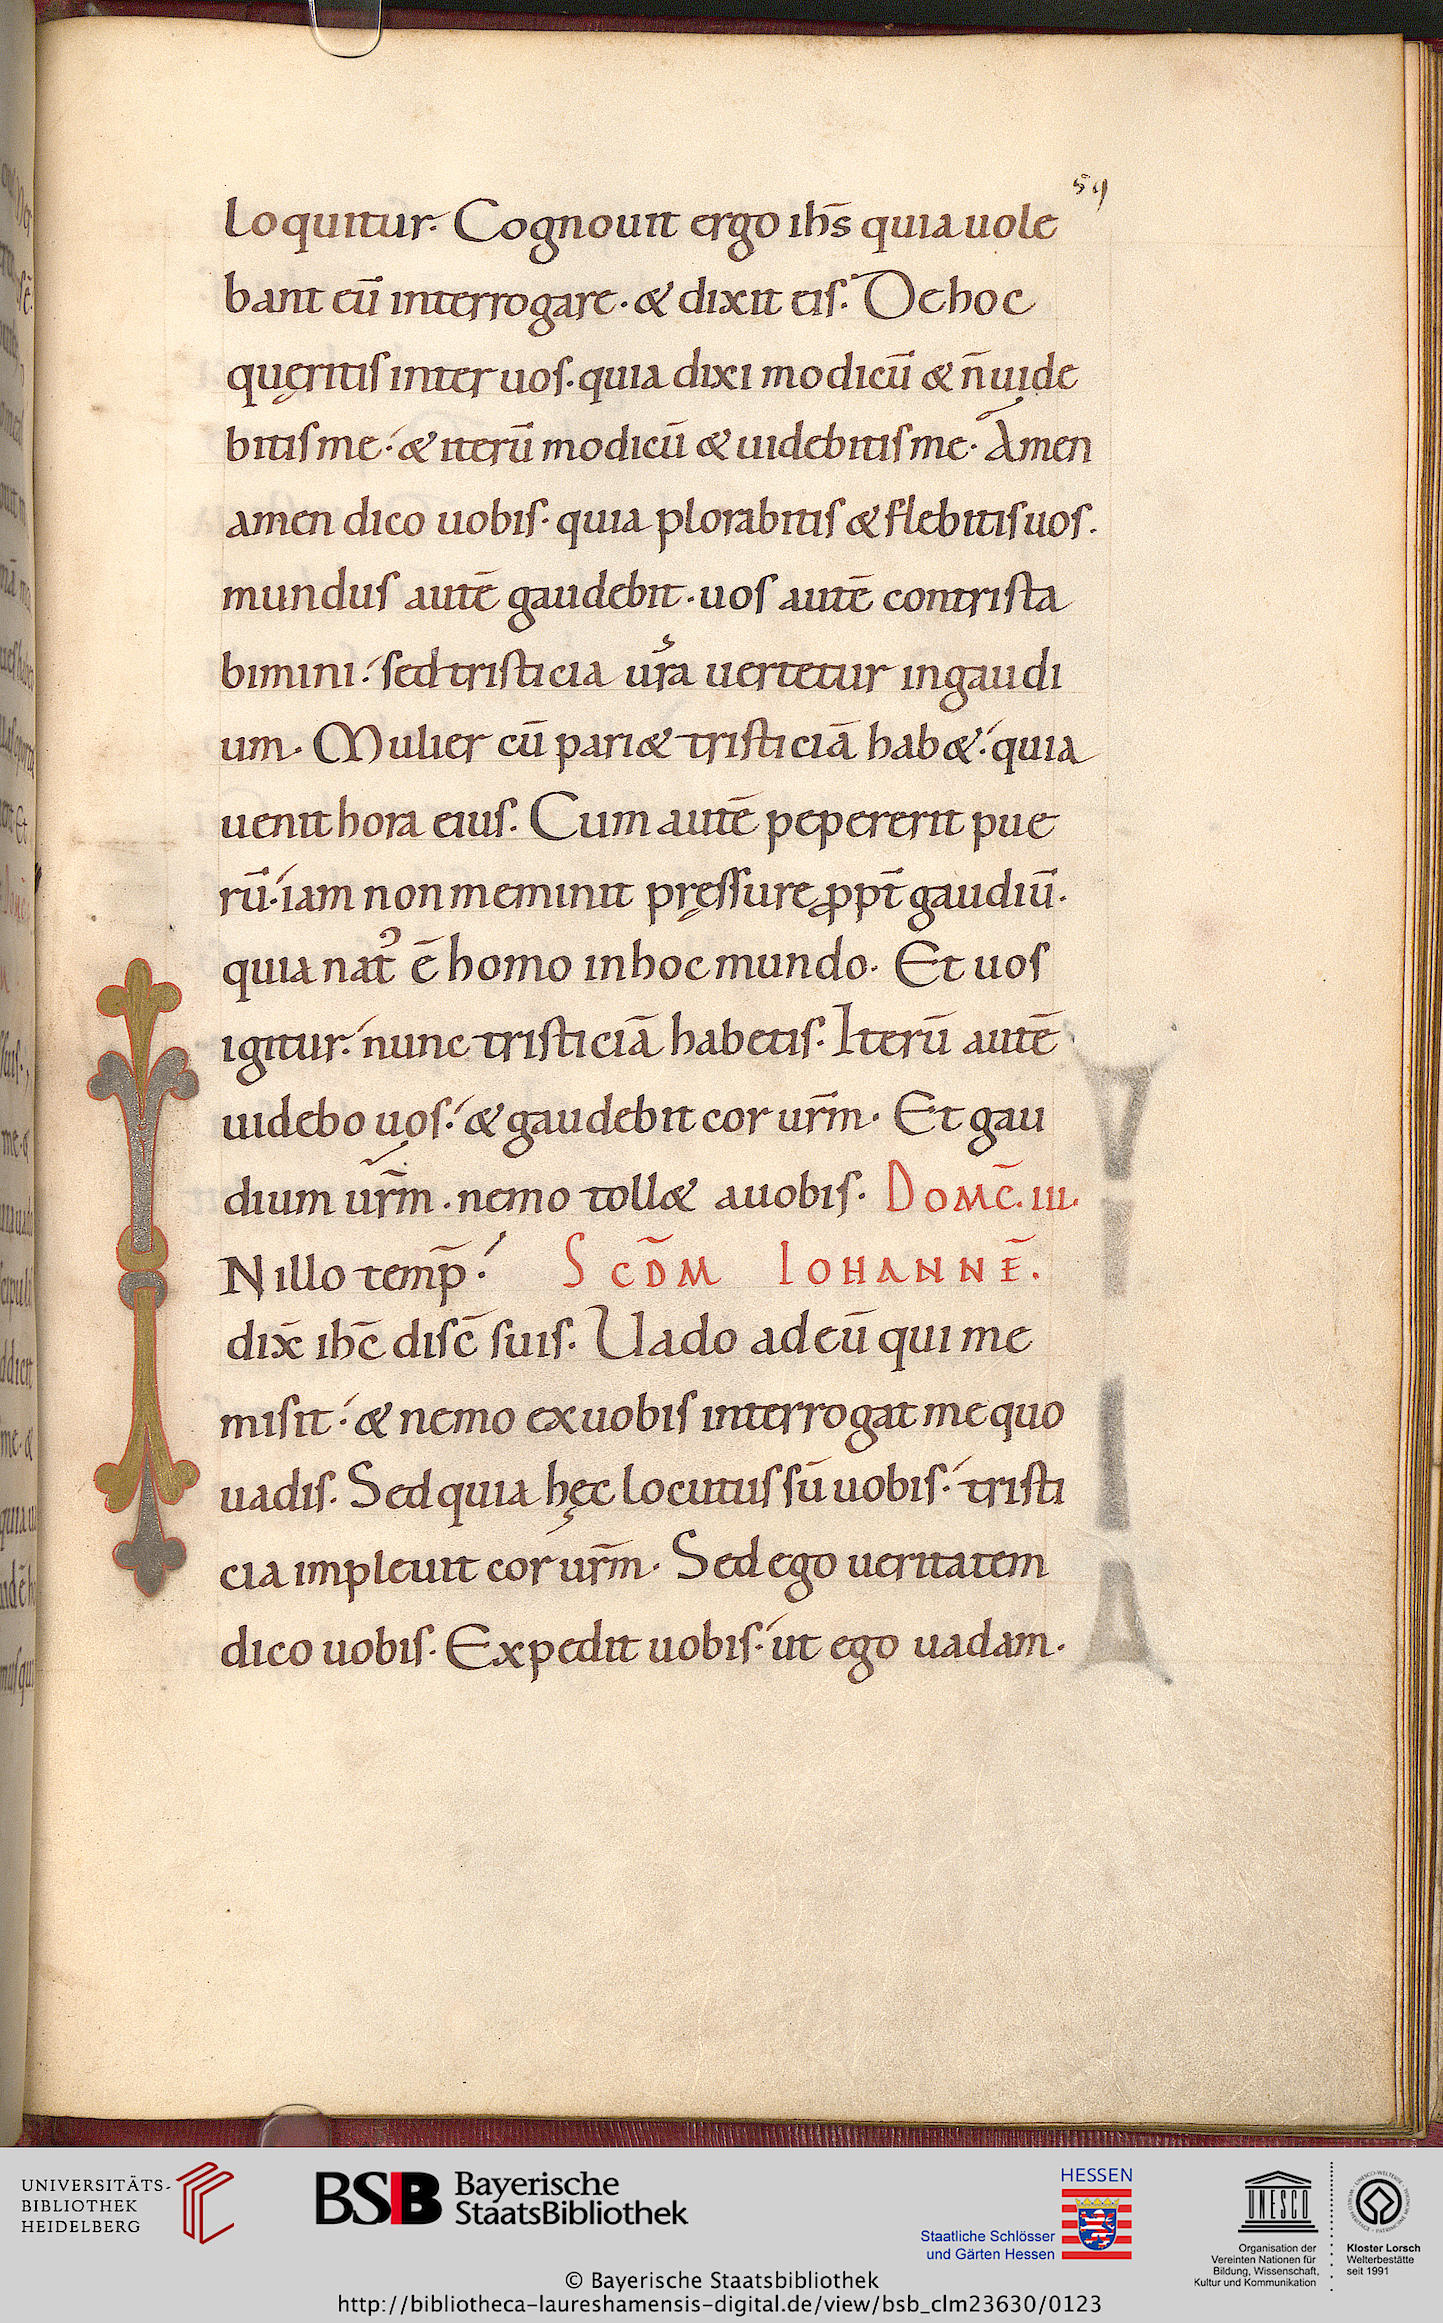 59
loquitur. Cognouit ergo ihs̄ quia uole
bant eū interrogare. & dixit eis. De hoc
quęritis inter uos. quia dixi modicū & n̄ uide
bitis me. & iterū modicū & uidebitis me. Amen
amen dico uobis. quia plorabitis & flebitis uos.
mundus autē gaudebit. uos autē contrista
bimini. sed tristicia ur̄a uertetur in gaudi
um. Mulier cū pari& tristiciā hab&. quia
uenit hora eius. Cum autē pepererit pue
rū. iam non meminit pręssure ꝓpt̄ gaudiū.
quia natꝰ ē homo in hoc mundo. Et uos
igitur. nunc tristiciā habetis. Iterū autē
uidebo uos. & gaudebit cor ur̄m. Et gau
dium ur̄m. nemo toll& a uobis. Domc̄. III.
IN illo temp̄. Scd̄m Iohannē.
dix̄ ihc̄ disc̄ suis. Uado ad eū qui me
misit. & nemo ex uobis interrogat me quo
uadis. Sed quia hęc locutus sū uobis. tristi
cia impleuit cor ur̄m. Sed ego ueritatem
dico uobis. Expedit uobis. ut ego uadam.
UNIVERSITÄTS-
BIBLIOTHEK
HEIDELBERG
BSB Bayerische
StaatsBibliothek
HESSEN
Staatliche Schlösser
und Gärten Hessen
UNESCO
Organisation der
Vereinten Nationen für
Bildung, Wissenschaft,
Kultur und Kommunikation
Kloster Lorsch
Welterbestätte
seit 1991
© Bayerische Staatsbibliothek
http://bibliotheca-laureshamensis-digital.de/view/bsb_clm23630/0123